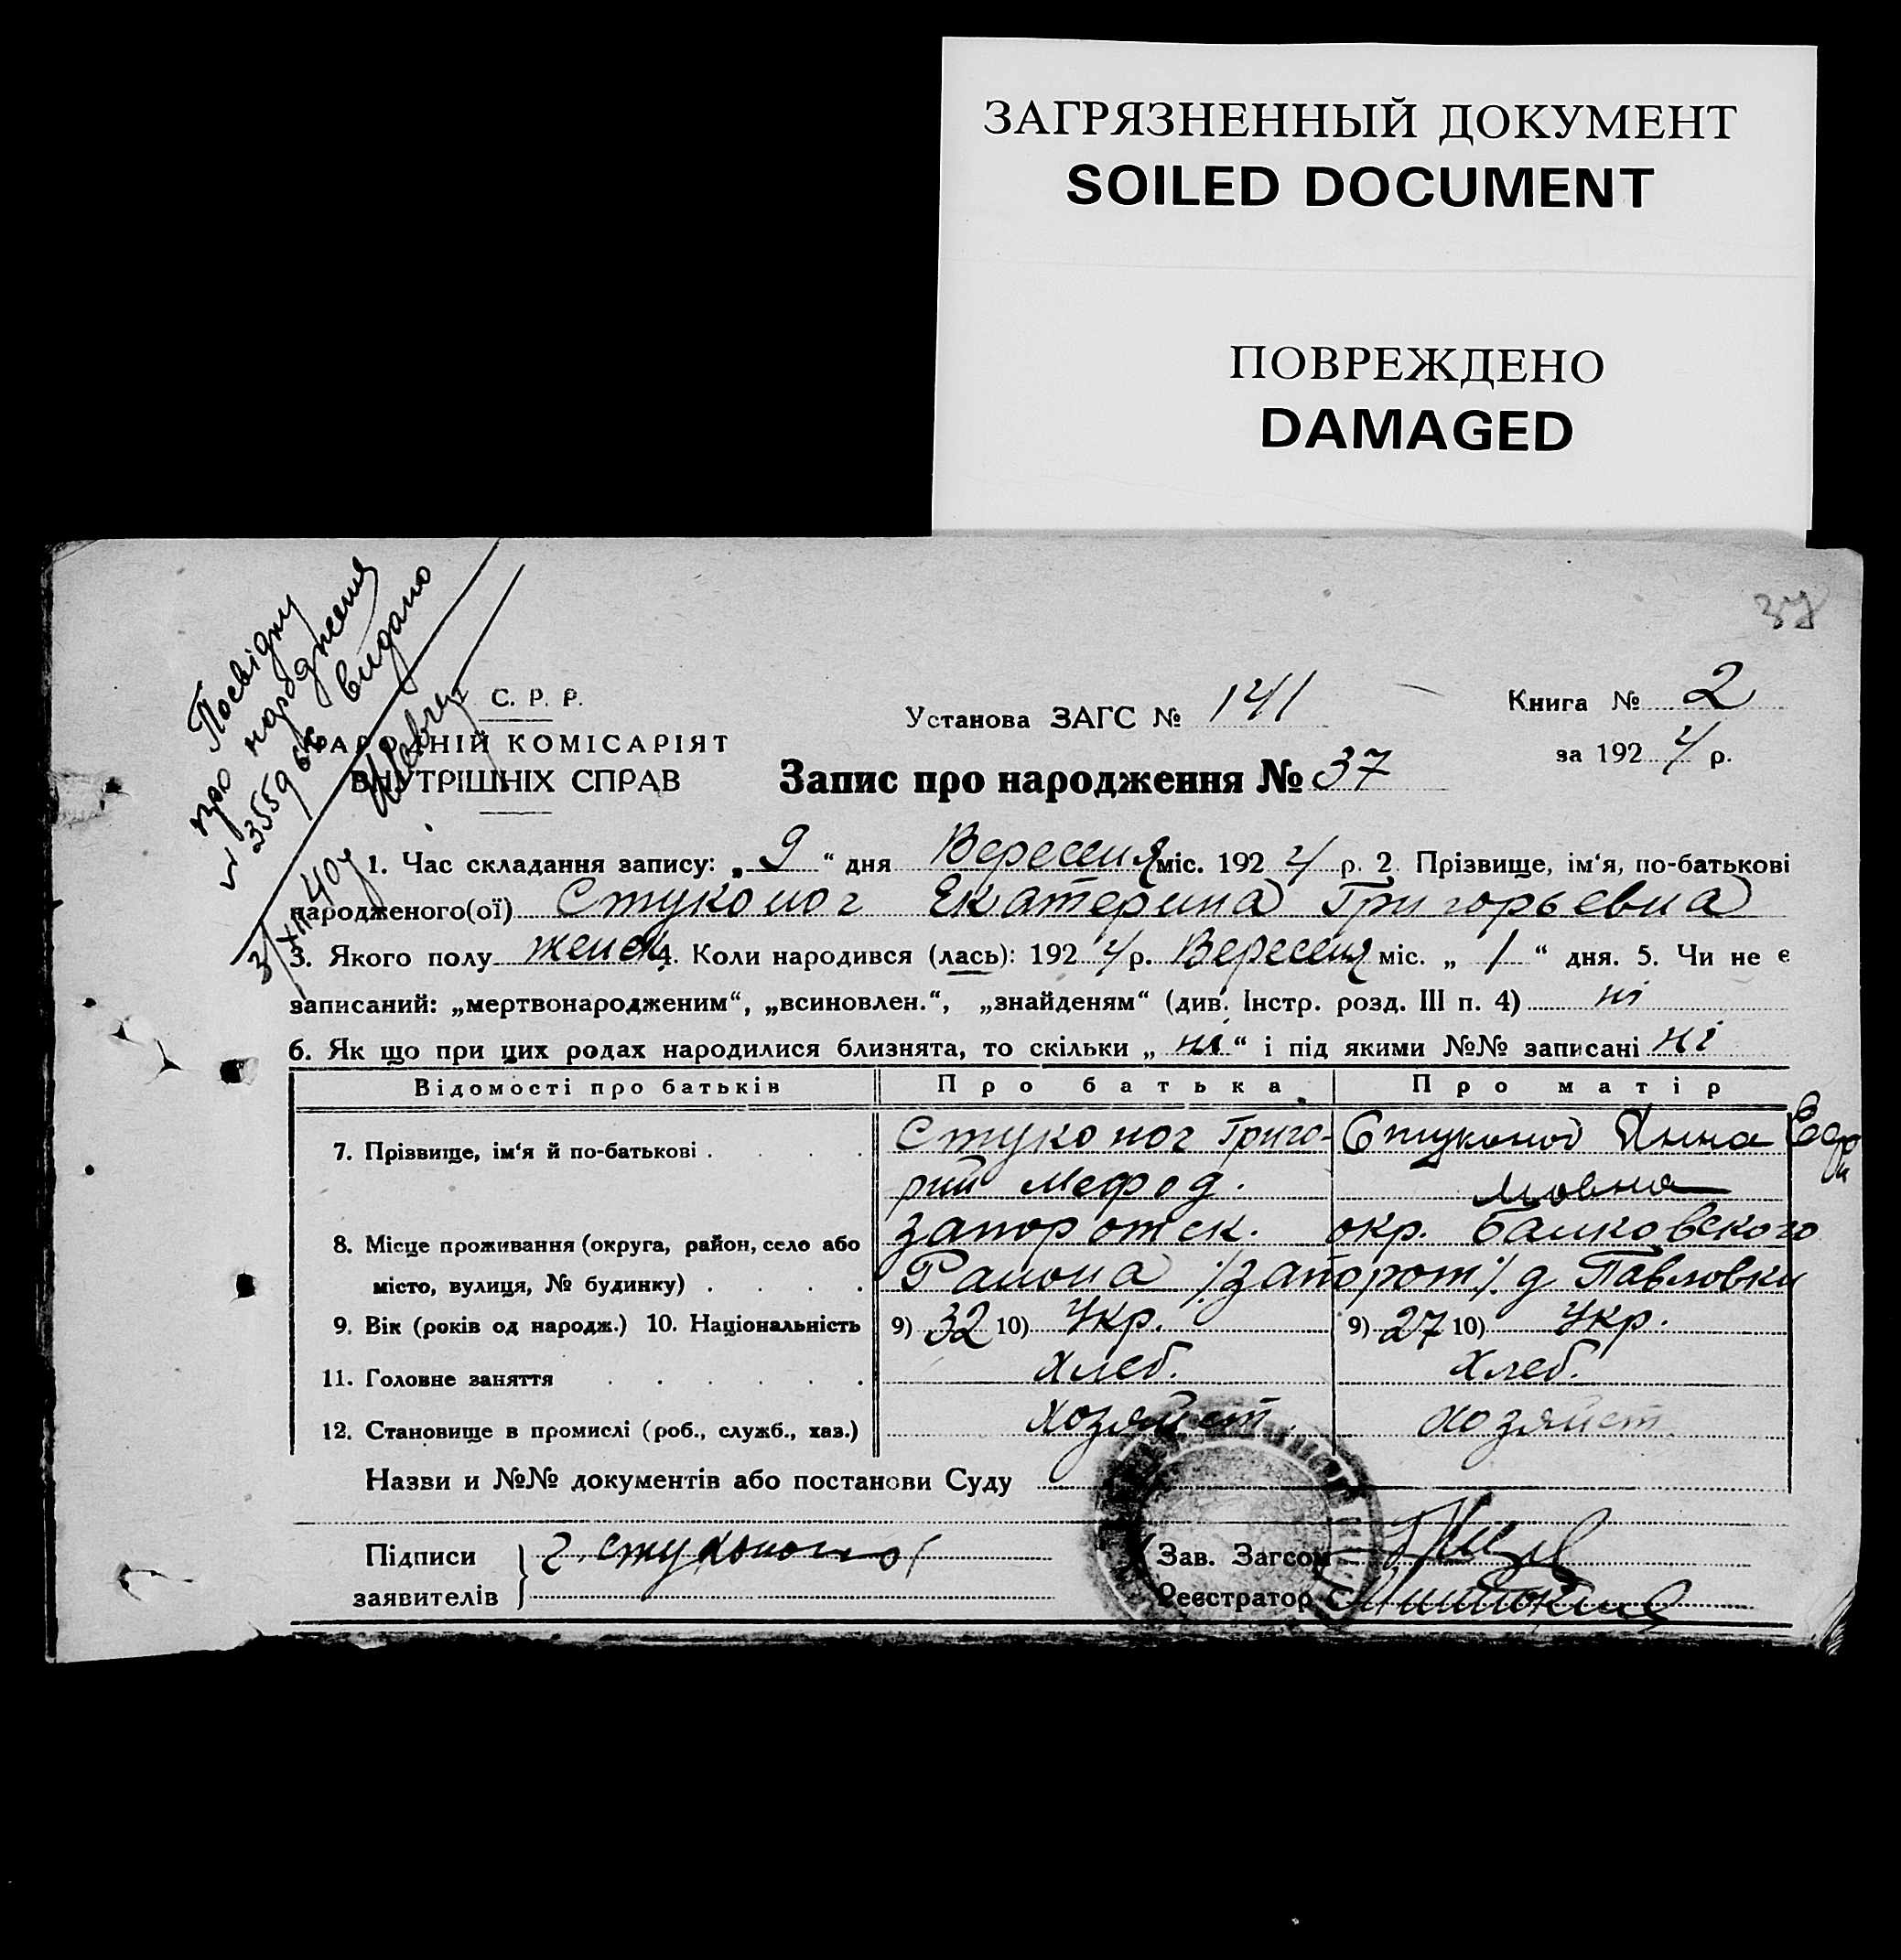 ЗАГРЯЗНЕННЫЙ ДОКУМЕНТ
SOILED DOCUMENT
ПОВРЕЖДЕНО
DAMAGED
37
Посвідку
про народження
№ 35596 видано
3/XII 40р
С. Р. Р.
НАРОДНІЙ КОМІСАРІЯТ
ВНУТРІШНІХ СПРАВ
Установа ЗАГС № 141
Книга № 2
за 1924 р.
Запис про народження № 37
1. Час складання запису: „ 9 “ дня Вересеня міс. 1924 р. 2. Прізвище, ім‘я, по-батькові
народженого(ої) Стуконог Екатерина Григорьевна
3. Якого полу женск 4. Коли народився (лась): 1924 р. Вересеня міс. „ 1 “ дня. 5. Чи не є
записаний: „мертвонародженим“, „всиновлен.“, „знайденям“ (див. Інстр. розд. III п. 4) ні
6. Як що при цих родах народилися близнята, то скільки „ ні “ і під якими №№ записані ні
Відомості про батьків Про батька Про матір
7. Прізвище, ім‘я й по-батькові . . . . Стуконог Григо- Стуконог Анна
рий Мефод.
8. Місце проживання (округа, район, село або запорожск. окр. Балковского
місто, вулиця, № будинку) . . . . Района /запорож/. д Павловки
9. Вік (років од народж.) 10. Національність 9) 32 10) Укр. 9) 27 10) Укр.
11. Головне заняття . . . . . . Хлеб. Хлеб.
12. Становище в промислі (роб., служб., хаз.) хозяйст. хозяйст.
Назви и №№ документів або постанови Суду
Підписи Г. Стуконог Зав. Загсом
заявителів Реєстратор